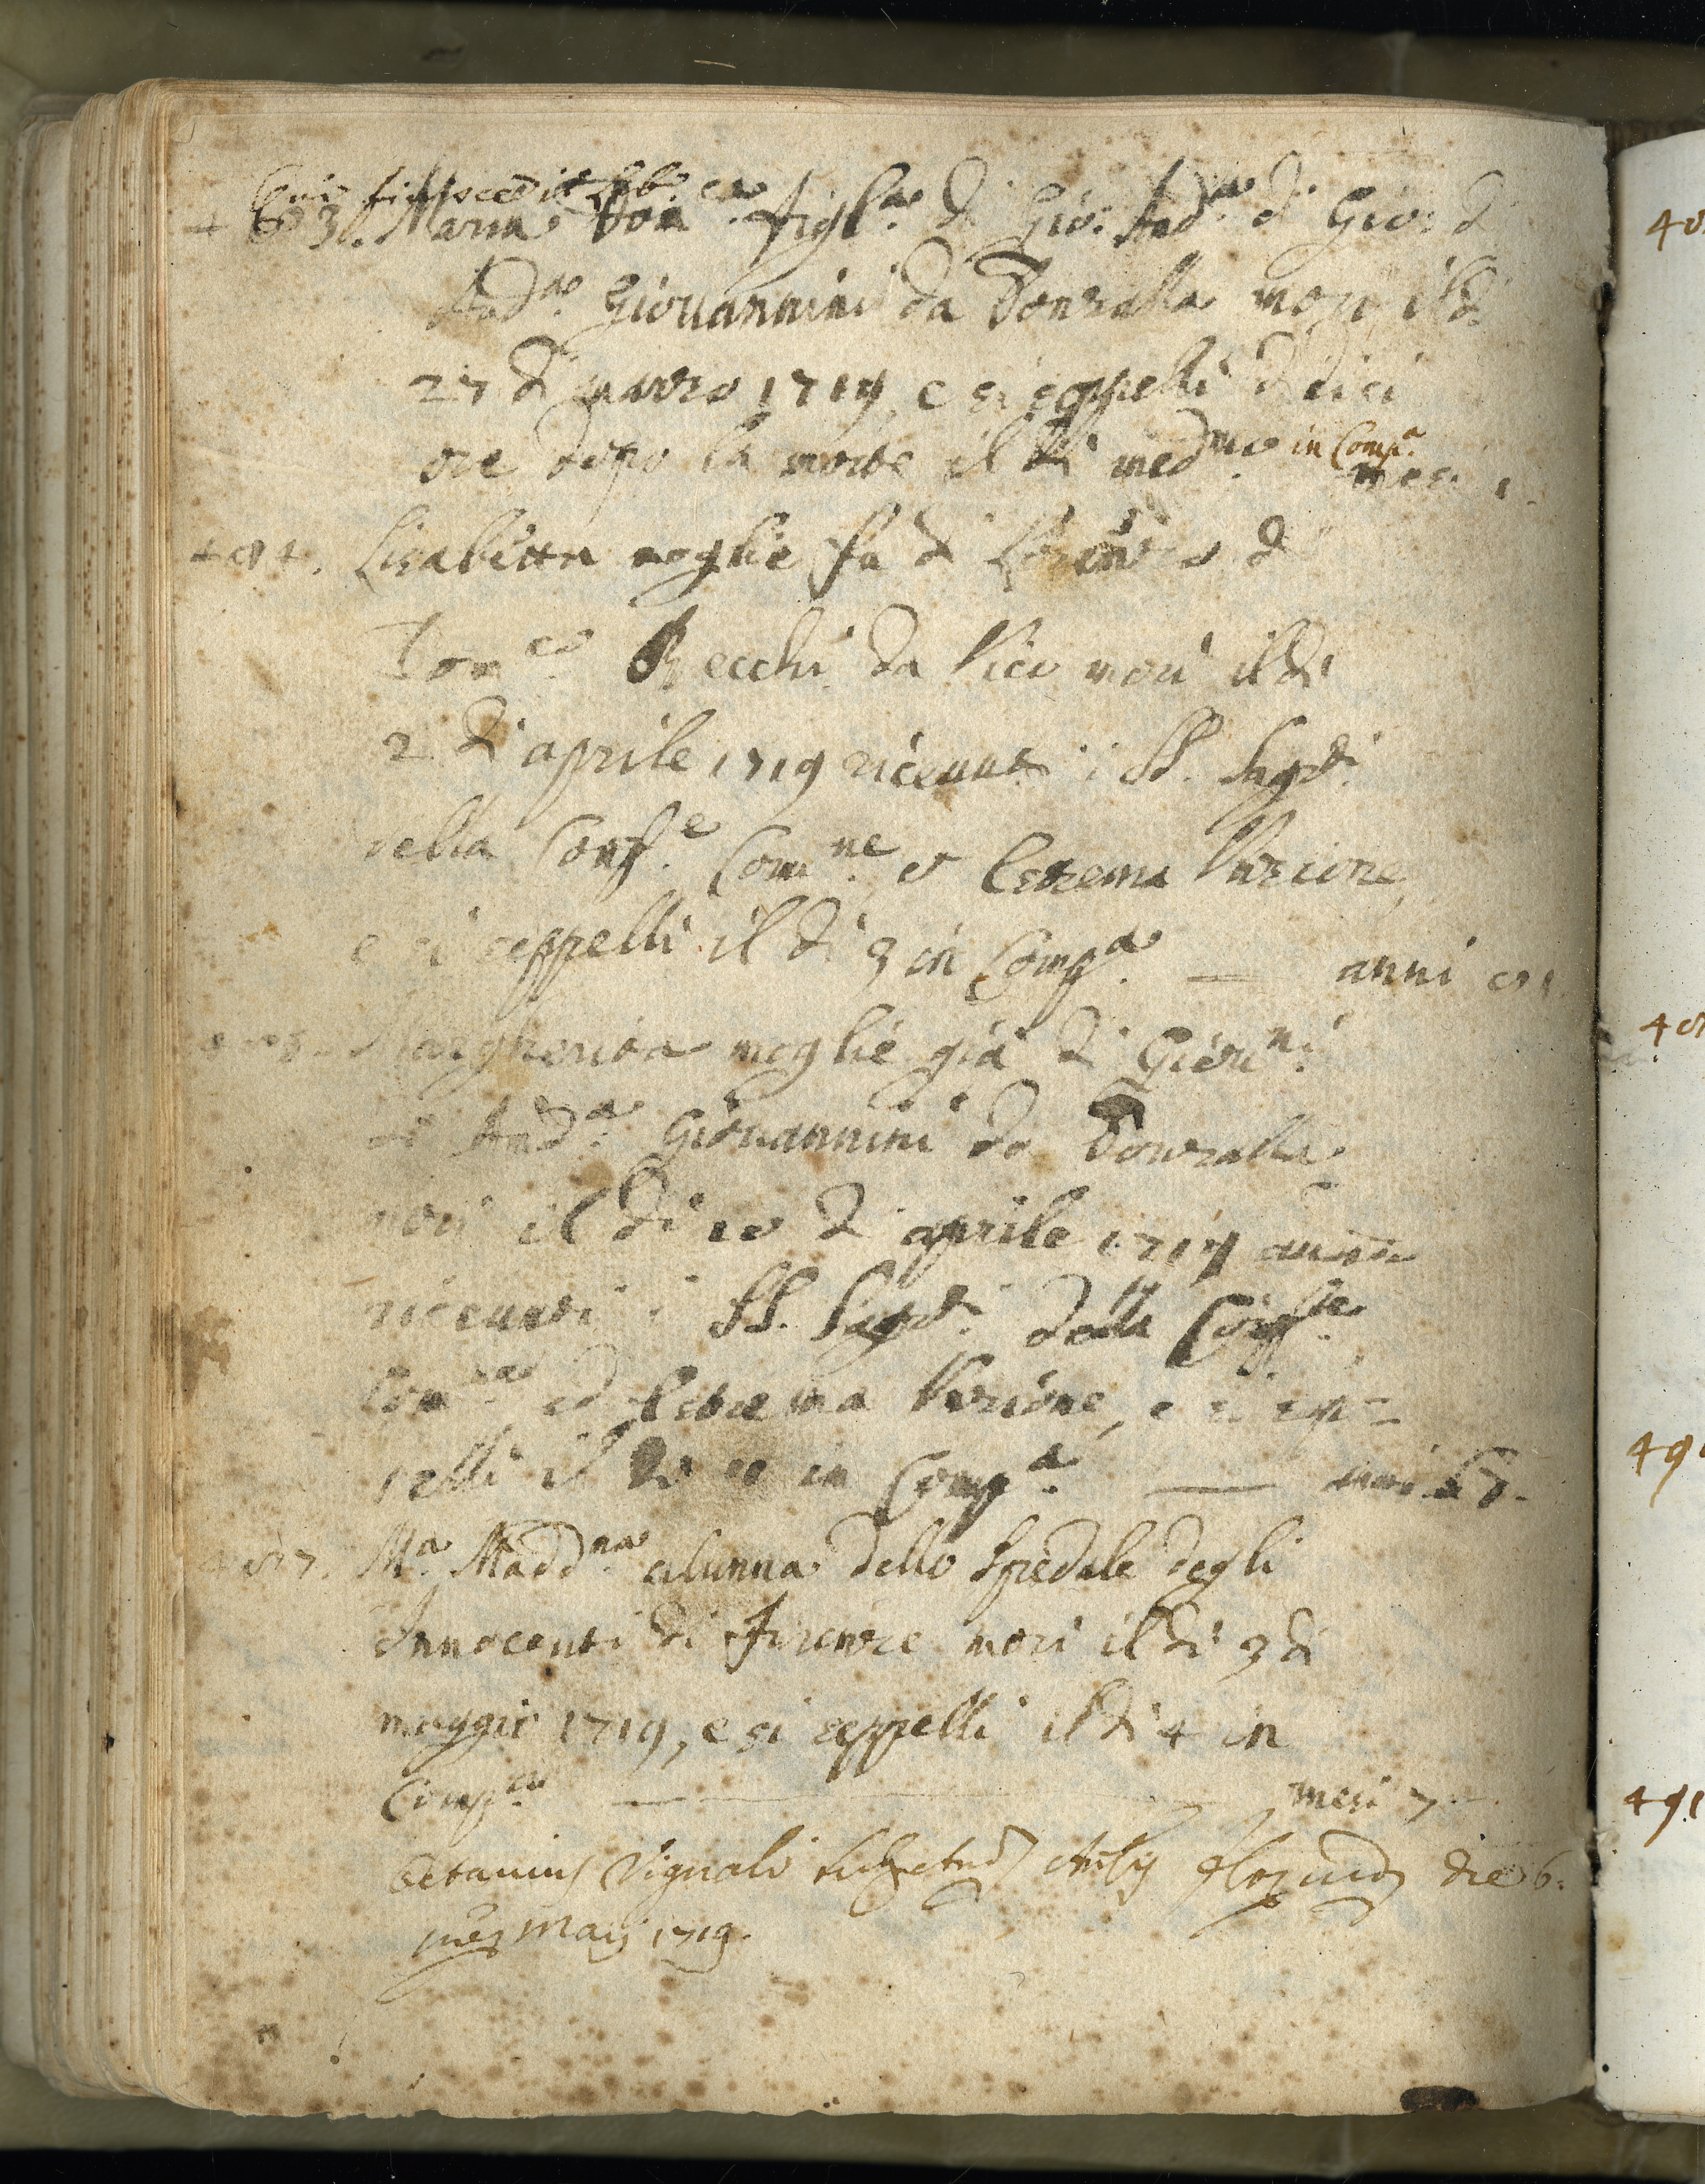 483. Maria Dom.ca figl.a di Gio: And.a di Gio: di
And.a Giouannini da Tonzalla morì il dì
27 di marzo 1719, e si seppellì dieci
ore dopo la morte il dì med.mo in Comp.a mesi 1.
484. Lisabetta moglie fu di Lorenzo di
Dom.co Becchi da Vico morì il dì
2 di aprile 1719 riceuuti i SS. Sag.ti
della Conf.e Com.ne et Estrema Unzione,
e si seppellì il dì 3 in Comp.a — anni
Margherita moglie già di Giou.ni
di And.a Giouannini da Tonzalla
morì il dì 10 di aprile 1719
riceuuti i SS. Sag.ti della Conf.ne
Com.ne ed Estrema Unzione, e si sep=
pellì il dì in Comp.a — anni
487. M.a Madd.na alunna dello Spedale degli
Innocenti di Firenze morì il dì 3 di
maggio 1719, e si seppellì il dì 4 in
Comp.a — mesi 7
Octauius Vignali die 6.
mens Maij 1719.